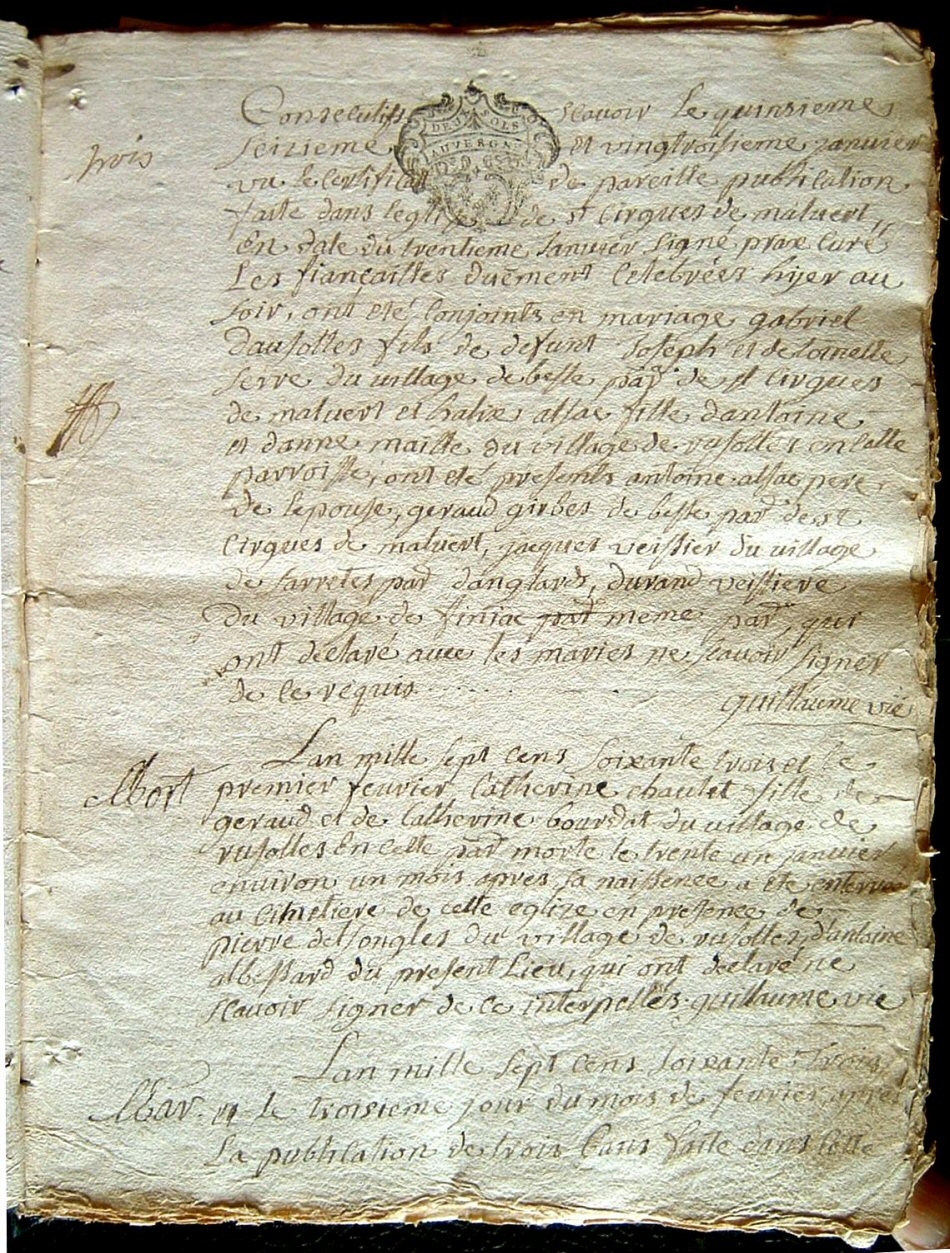 trois
Consecutifs scavoir le quinsieme
DEUX SOLS
AUVERGNE
seizieme et vingtroisieme janvier
vu le certificat de pareille publication
faite dans leglise de st Cirgues de malvert,
En date du trentieme Janvier signé prax curé
Les fiançailles duement Celebrées hyer au
soir, ont eté Conjoints en mariage gabriel
Dausolles fils de defunt Joseph et de toinette
serre du village de besse par de st Cirgues
de malvert et alsac fille dantoine
et danne maille du village de rusolles en cette
parroisse, ont eté presents antoine alsac pere
de lepouse, geraud girbes de besse par de st
Cirgues de malvert, jacques veissier du village
de sarretes par danglards, durand veissiere
du village de finiac meme par, qui
ont declaré avec les mariés ne scavoir signer
de ce requis
guillaume vie
Mort
Lan mille sept cens soixante trois et le
premier fevrier Catherine chaulet fille de
geraud et de Catherine bourdat du village de
rusolles En cette par morte le trente un janvier
environ un mois apres sa naissence a eté enterree
au Cimetiere de cette eglize en presence de
pierre delsongles du village de rusolles, dantoine
albessard du present Lieu, qui ont declaré ne
scavoir signer de ce interpellés. guillaume vie
Mar.
Lan mille sept cens soixante trois
et le troisieme jour du mois de fevrier, apres
La publication de trois bans faite dans cette